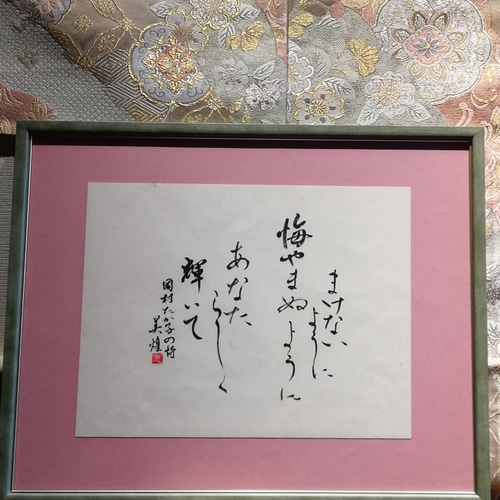 まけない
ように
悔やまぬように
あなた
らしく
輝いて
岡村たか子の詩
美煌